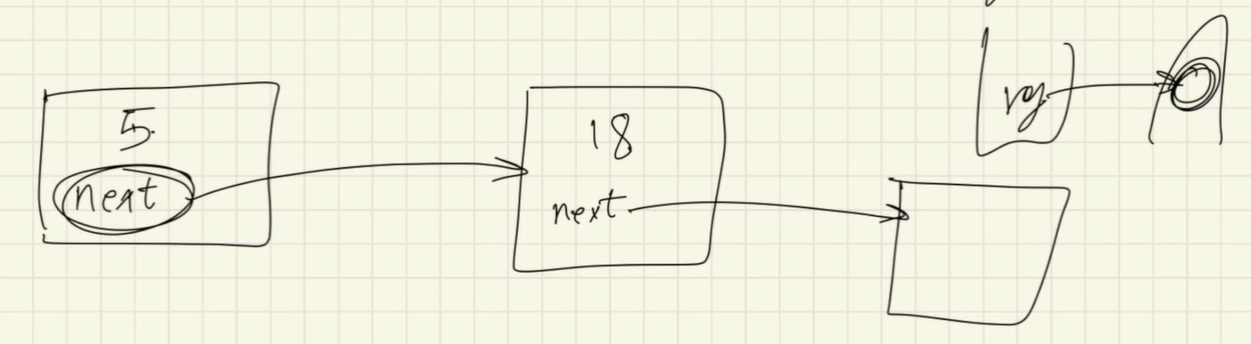 5
next
18
next